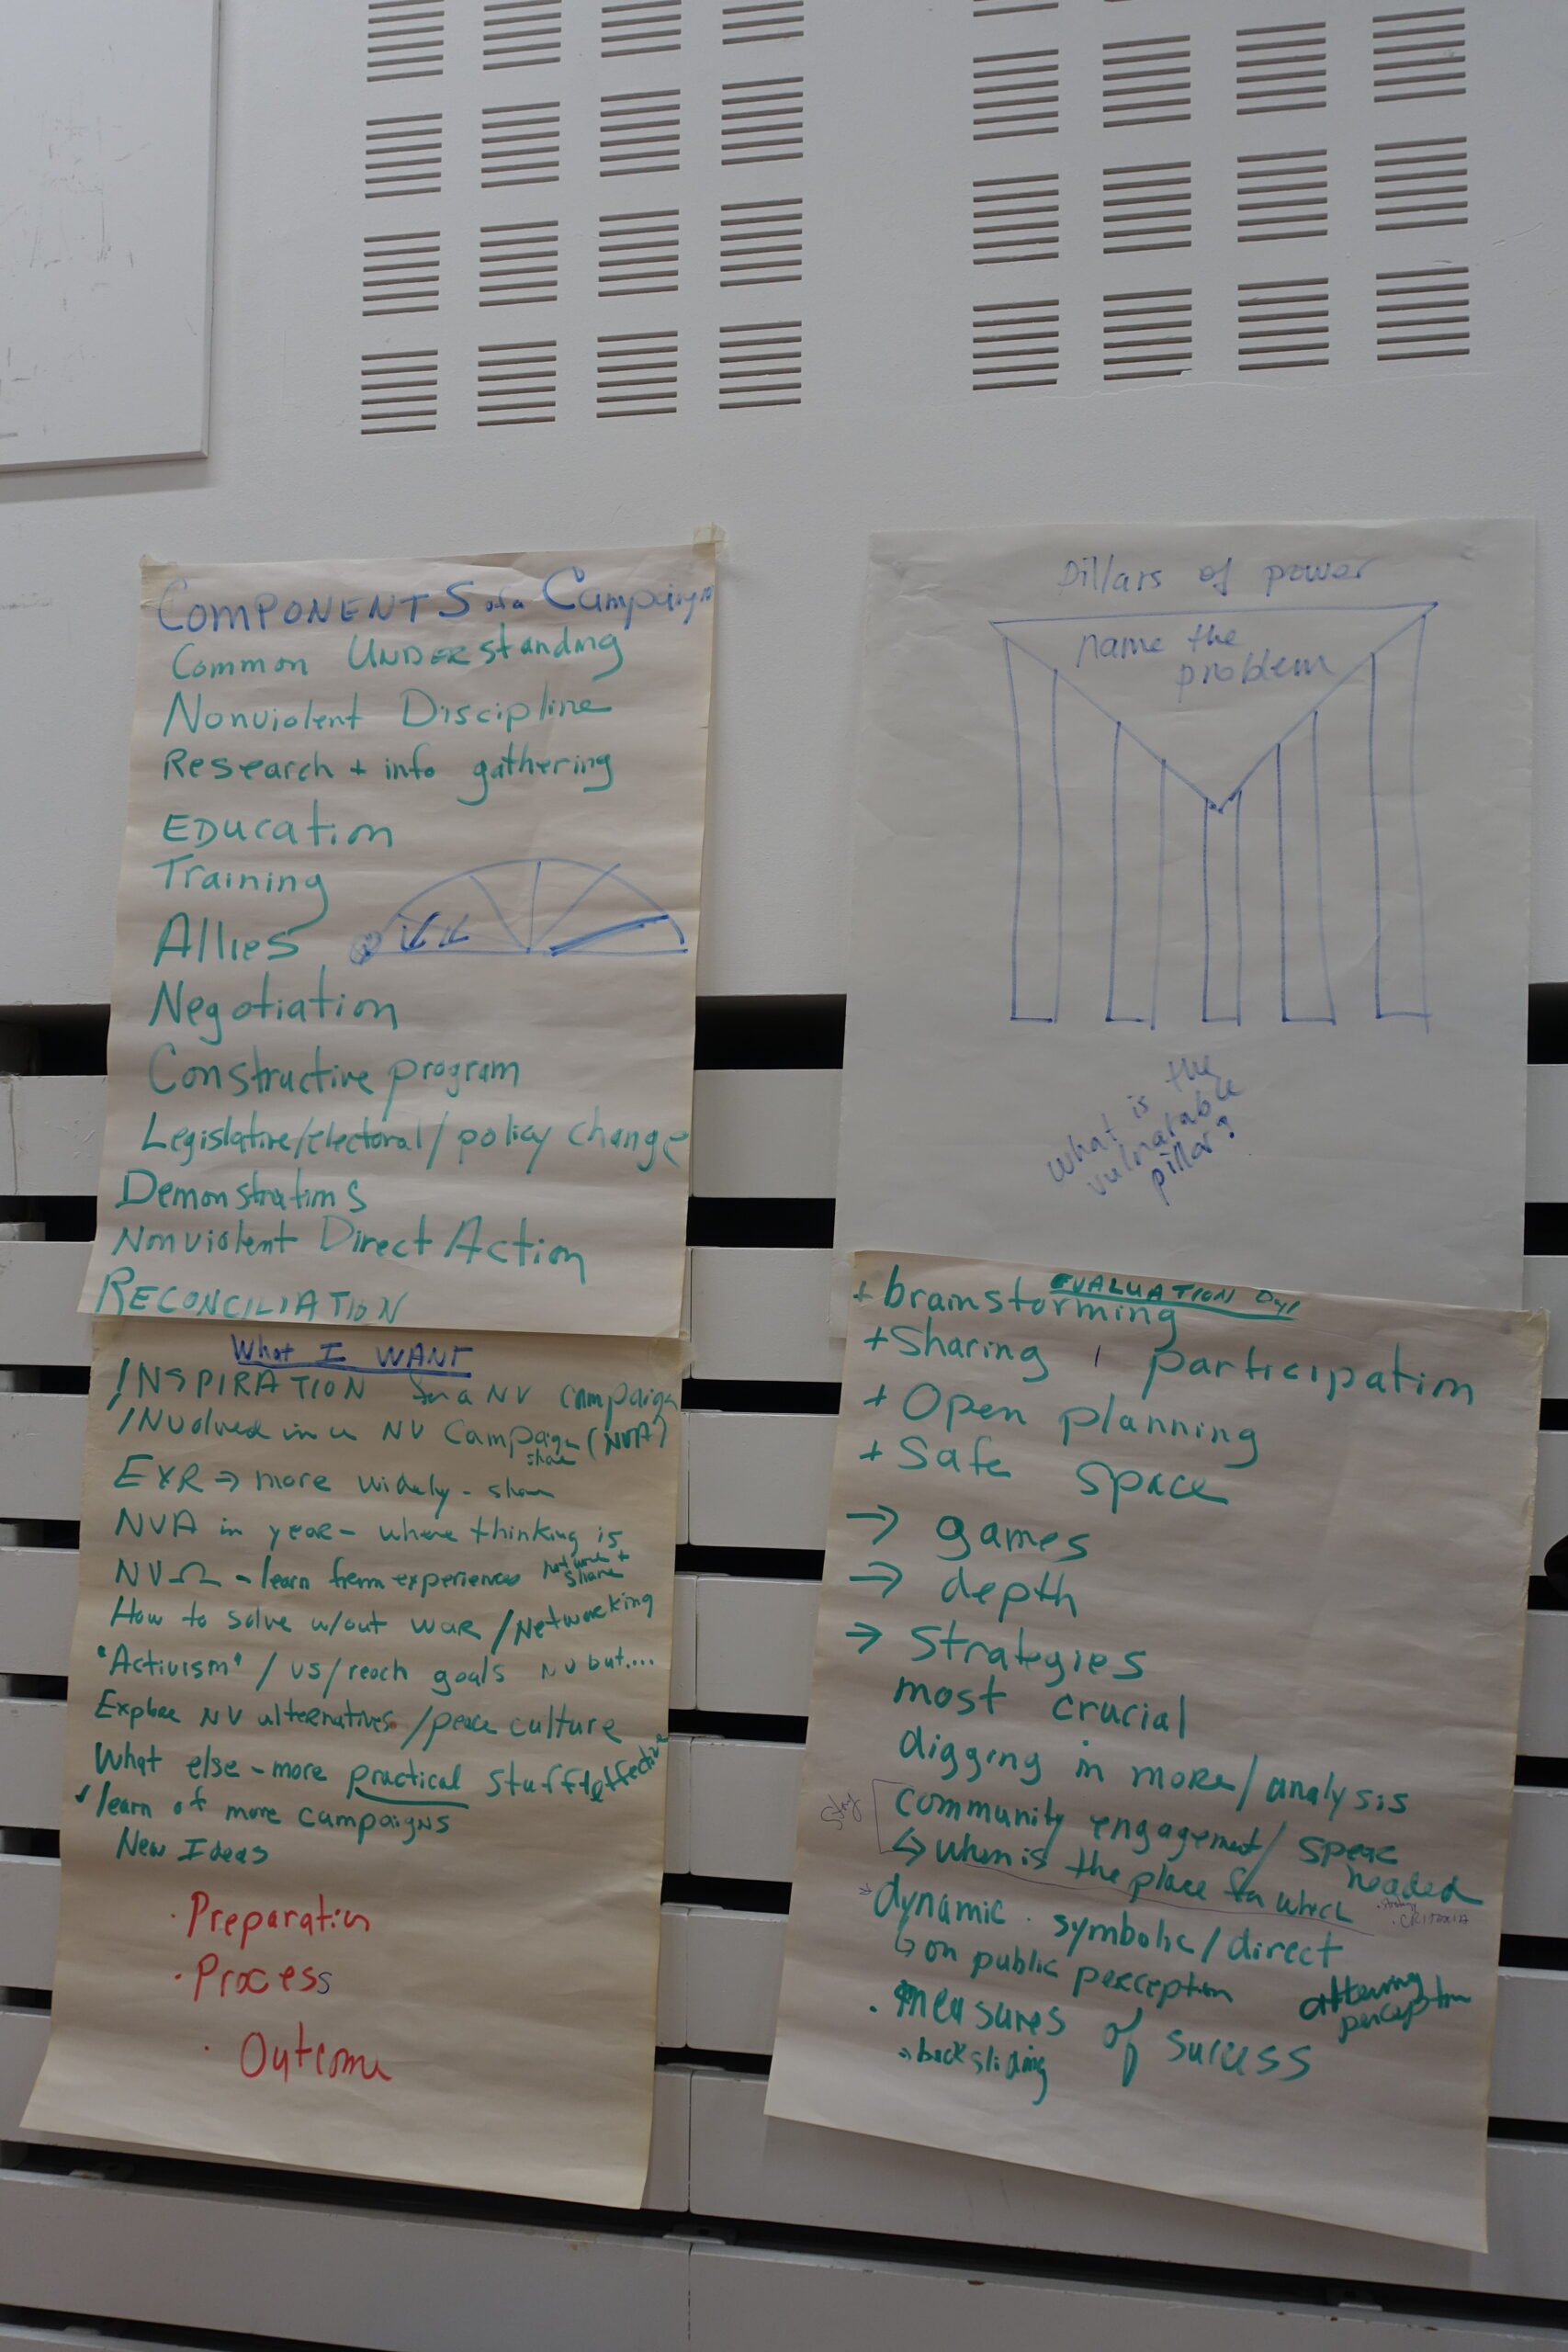 COMPONENTS of a Campaign
Common UNDERstanding
Nonviolent Discipline
Research + info gathering
EDucation
Training
Allies
Negotiation
Constructive program
Legislative/electoral/policy change
Demonstrations
Nonviolent Direct Action
RECONCILIATION
Pillars of power
name the
problem
What is the
vulnarable
pillar?
What I WANT
INSPIRATION for a NV campaign
INvolved in a NV Campaign (NVA)
share
EXR → more widely - share
NVA in year - where thinking is
NVΩ - learn from experiences network + share
How to solve w/out war / Networking
"Activism" / us/reach goals NV but....
Explore NV alternatives / peace culture
What else - more practical stuff effective
✓ learn of more campaigns
New Ideas
· Preparation
· Process
· Outcome
EVALUATION Day 1
+ brainstorming
+ Sharing participation
+ Open planning
+ Safe space
→ games
→ depth
→ Strategies
most crucial
digging in more/analysis
community engagement/ spear
headed
↳ when is the place for which
CRITERIA
dynamic · symbolic/direct
↳ on public perception
attening
perception
· measures of sucess
→ backsliding